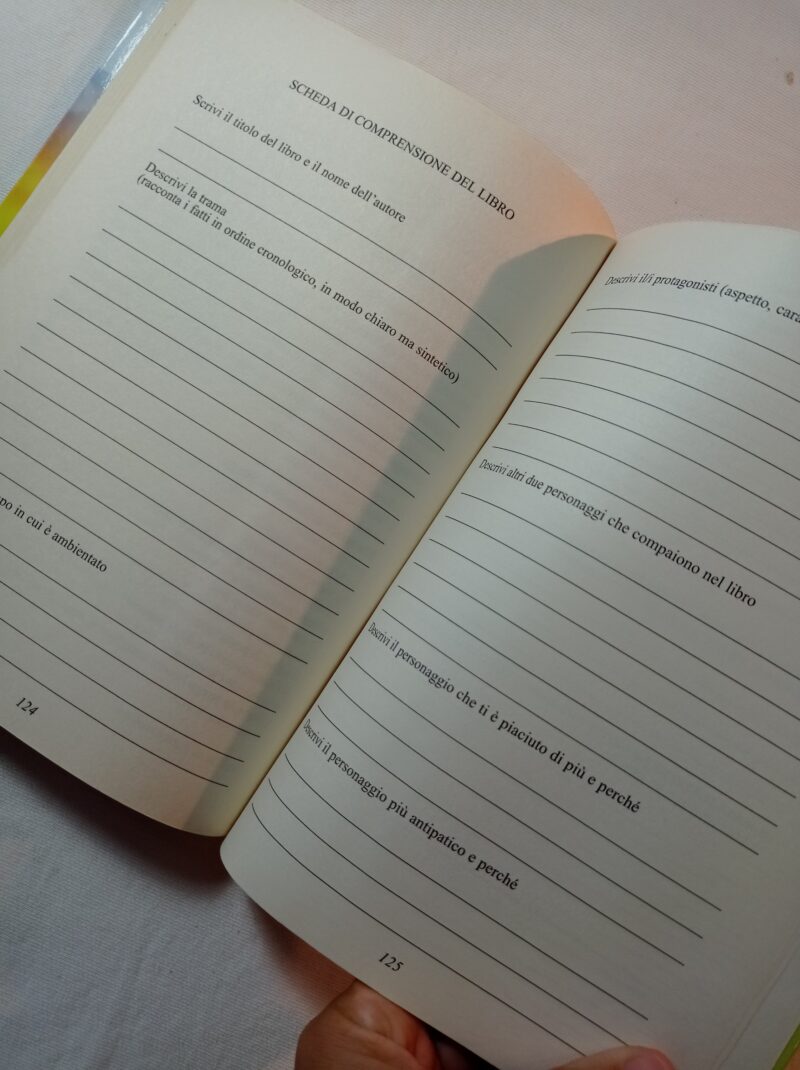 SCHEDA DI COMPRENSIONE DEL LIBRO
Scrivi il titolo del libro e il nome dell'autore
Descrivi la trama
(racconta i fatti in ordine cronologico, in modo chiaro ma sintetico)
in cui è ambientato
124
Descrivi il/i protagonisti (aspetto,
Descrivi altri due personaggi che compaiono nel libro
Descrivi il personaggio che ti è piaciuto di più e perché
Descrivi il personaggio più antipatico e perché
125